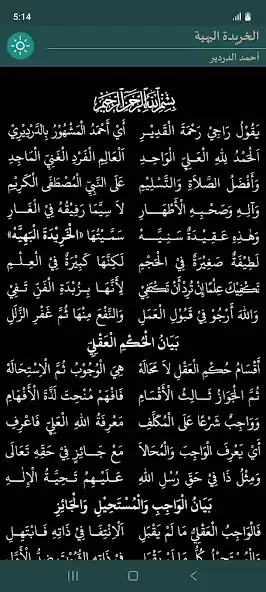 5:14
الخريدة البهية
أحمد الدردير
بِسْمِ اللَّهِ الرَّحْمَنِ الرَّحِيمِ
يَقُولُ رَاجِي رَحْمَةَ الْقَدِيرِ أَيْ أَحْمَدُ الْمَشْهُورُ بِالدَّرْدِيرِيْ
اَلْحَمْدُ لِلَّهِ الْعَلِيِّ الْوَاحِدِ اَلْعَالِمِ الْفَرْدِ الْغَنِيِّ الْمَاجِدِ
وَأَفْضَلُ الصَّلَاةِ وَالتَّسْلِيمِ عَلَى النَّبِيِّ الْمُصْطَفَى الْكَرِيمِ
وَآلِهِ وَصَحْبِهِ الْأَطْهَارِ لَا سِيَّمَا رَفِيقُهُ فِي الْغَارِ
وَهَذِهِ عَقِيدَةٌ سَنِيَّهْ سَمَّيْتُهَا «الْخَرِيدَةَ الْبَهِيَّهْ»
لَطِيفَةٌ صَغِيرَةٌ فِي الْحَجْمِ لَكِنَّهَا كَبِيرَةٌ فِي الْعِلْمِ
تَكْفِيكَ عِلْمًا إِنْ تُرِدْ أَنْ تَكْتَفِيْ لِأَنَّهَا بِزُبْدَةِ الْفَنِّ تَفِيْ
وَاللَّهَ أَرْجُو فِي قَبُولِ الْعَمَلِ وَالنَّفْعِ مِنْهَا ثُمَّ غَفْرِ الزَّلَلِ
بَيَانُ الْحُكْمِ الْعَقْلِيِّ
أَقْسَامُ حُكْمِ الْعَقْلِ لَا مَحَالَهْ هِيَ الْوُجُوبُ ثُمَّ الِاسْتِحَالَهْ
ثُمَّ الْجَوَازُ ثَالِثُ الْأَقْسَامِ فَافْهَمْ مُنِحْتَ لَذَّةَ الْأَفْهَامِ
وَوَاجِبٌ شَرْعًا عَلَى الْمُكَلَّفِ مَعْرِفَةُ اللَّهِ الْعَلِيِّ فَاعْرِفِ
أَيْ يَعْرِفُ الْوَاجِبَ وَالْمُحَالَا مَعْ جَائِزٍ فِي حَقِّهِ تَعَالَى
وَمِثْلُ ذَا فِي حَقِّ رُسْلِ اللَّهِ عَلَيْهِمُ تَحِيَّةُ الْإِلَٰهِ
بَيَانُ الْوَاجِبِ وَالْمُسْتَحِيلِ وَالْجَائِزِ
فَالْوَاجِبُ الْعَقْلِيُّ مَا لَمْ يَقْبَلِ الِانْتِفَا فِي ذَاتِهِ فَابْتَهِلِ